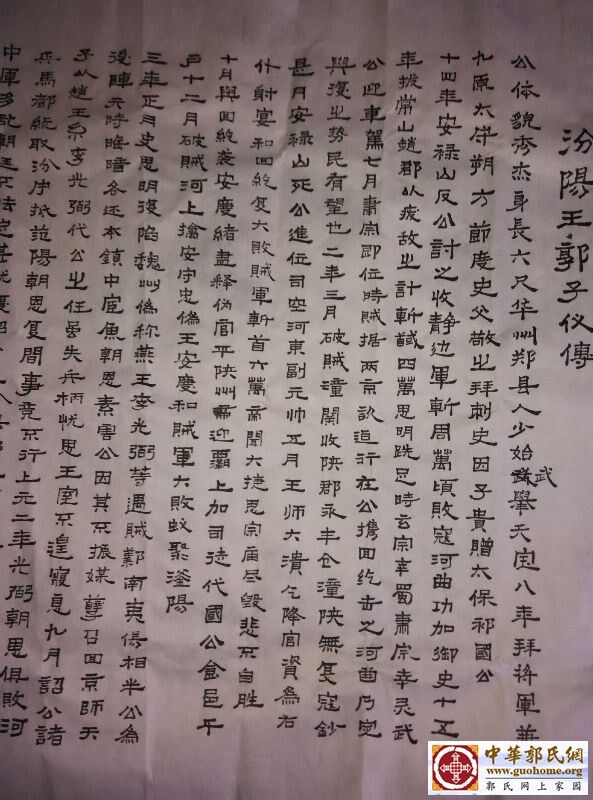 汾陽王郭子仪傳
公体貌秀杰身長六尺华州郑县人少始武舉天宝八年拜将軍兼
九原太守朔方節度史父敬之拜刺史因子貴贈太保祁國公
十四年安禄山反公討之收静边軍斬周萬頃敗寇河曲功加御史十五
年拔常山趙郡以疾故之計斬馘四萬思明跣足時玄宗幸蜀肃宗幸灵武
公迎車駕七月肅宗即位時賊据兩京詔追行在公携回纥击之河曲乃定
興復之势民有望也二年三月破賊潼関收陕郡永丰仓潼陕無复寇鈔
是月安禄山死公進位司空河東副元帅五月王師大潰乞降官資為右
什射宴和回紇复大敗賊軍斬首六萬髙関大捷思宗庙尽毁悲不自胜
十月與回紇袭安慶緒盡释伪官平陕州 迎霸上加司徒代國公食邑千
户十二月破賊河上擒安守忠偽王安慶和賊軍大敗蚊聚滏陽
三年正月史思明復陷魏州偽称燕王李光弼等遇賊鄴南夷傷相半公為
後陣天時晦暗各还本鎮中宦魚朝恩素害公因其不振媒孽召回京師天
子以趙王系李光弼代公之任虽失兵柄忧思王室不遑寢息九月詔公諸
兵馬都統取汾 抵范陽朝恩复間事竟不行上元二年光弼朝恩俱敗河
中軍
中華郭氏網
www.guohome.org
郭氏网上家园